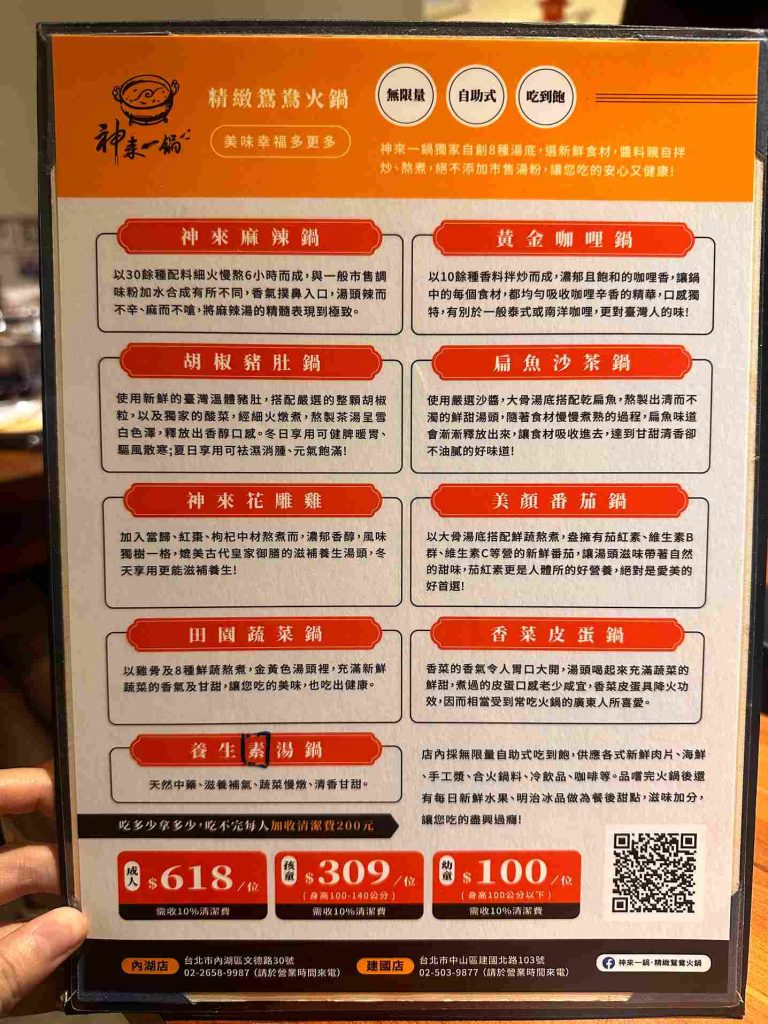 神來一鍋
精緻鴛鴦火鍋
美味幸福多更多
無限量
自助式
吃到飽
神來一鍋獨家自創8種湯底,選新鮮食材,醬料親自拌
炒、熬煮,絕不添加市售湯粉,讓您吃的安心又健康!
神來麻辣鍋
以30餘種配料細火慢熬6小時而成,與一般市售調
味粉加水合成有所不同,香氣撲鼻入口,湯頭辣而
不辛、麻而不嗆,將麻辣湯的精髓表現到極致。
黃金咖哩鍋
以10餘種香料拌炒而成,濃郁且飽和的咖哩香,讓鍋
中的每個食材,都均勻吸收咖哩辛香的精華,口感獨
特,有別於一般泰式或南洋咖哩,更對臺灣人的味!
胡椒豬肚鍋
使用新鮮的臺灣溫體豬肚,搭配嚴選的整顆胡椒
粒,以及獨家的酸菜,經細火燉煮,熬製茶湯呈雪
白色澤,釋放出香醇口感。冬日享用可健脾暖胃、
驅風散寒;夏日享用可袪濕消腫、元氣飽滿!
扁魚沙茶鍋
使用嚴選沙醬,大骨湯底搭配乾扁魚,熬製出清而不
濁的鮮甜湯頭,隨著食材慢慢煮熟的過程,扁魚味道
會漸漸釋放出來,讓食材吸收進去,達到甘甜清香卻
不油膩的好味道!
神來花雕雞
加入當歸、紅棗、枸杞中材熬煮而,濃郁香醇,風味
獨樹一格,媲美古代皇家御膳的滋補養生湯頭,冬
天享用更能滋補養生!
美顏番茄鍋
以大骨湯底搭配鮮蔬熬煮,盎擁有茄紅素、維生素B
群、維生素C等營的新鮮番茄,讓湯頭滋味帶著自然
的甜味,茄紅素更是人體所的好營養,絕對是愛美的
好首選!
田園蔬菜鍋
以雞骨及8種鮮蔬熬煮,金黃色湯頭裡,充滿新鮮
蔬菜的香氣及甘甜,讓您吃的美味,也吃出健康。
香菜皮蛋鍋
香菜的香氣令人胃口大開,湯頭喝起來充滿蔬菜的
鮮甜,煮過的皮蛋口感老少咸宜,香菜皮蛋具降火功
效,因而相當受到常吃火鍋的廣東人所喜愛。
養生素湯鍋
天然中藥、滋養補氣、蔬菜慢燉、清香甘甜。
店內採無限量自助式吃到飽,供應各式新鮮肉片、海鮮
、手工漿、合火鍋料、冷飲品、咖啡等。品嚐完火鍋後還
有每日新鮮水果、明治冰品做為餐後甜點,滋味加分,
讓您吃的盡興過癮!
吃多少拿多少,吃不完每人加收清潔費200元
成人 $618/位
需收10%清潔費
孩童 $309/位
(身高100-140公分)
需收10%清潔費
幼童 $100/位
(身高100公分以下)
需收10%清潔費
內湖店
台北市內湖區文德路30號
02-2658-9987 (請於營業時間來電)
建國店
台北市中山區建國北路103號
02-503-9877 (請於營業時間來電)
神來一鍋·精緻鴛鴦火鍋